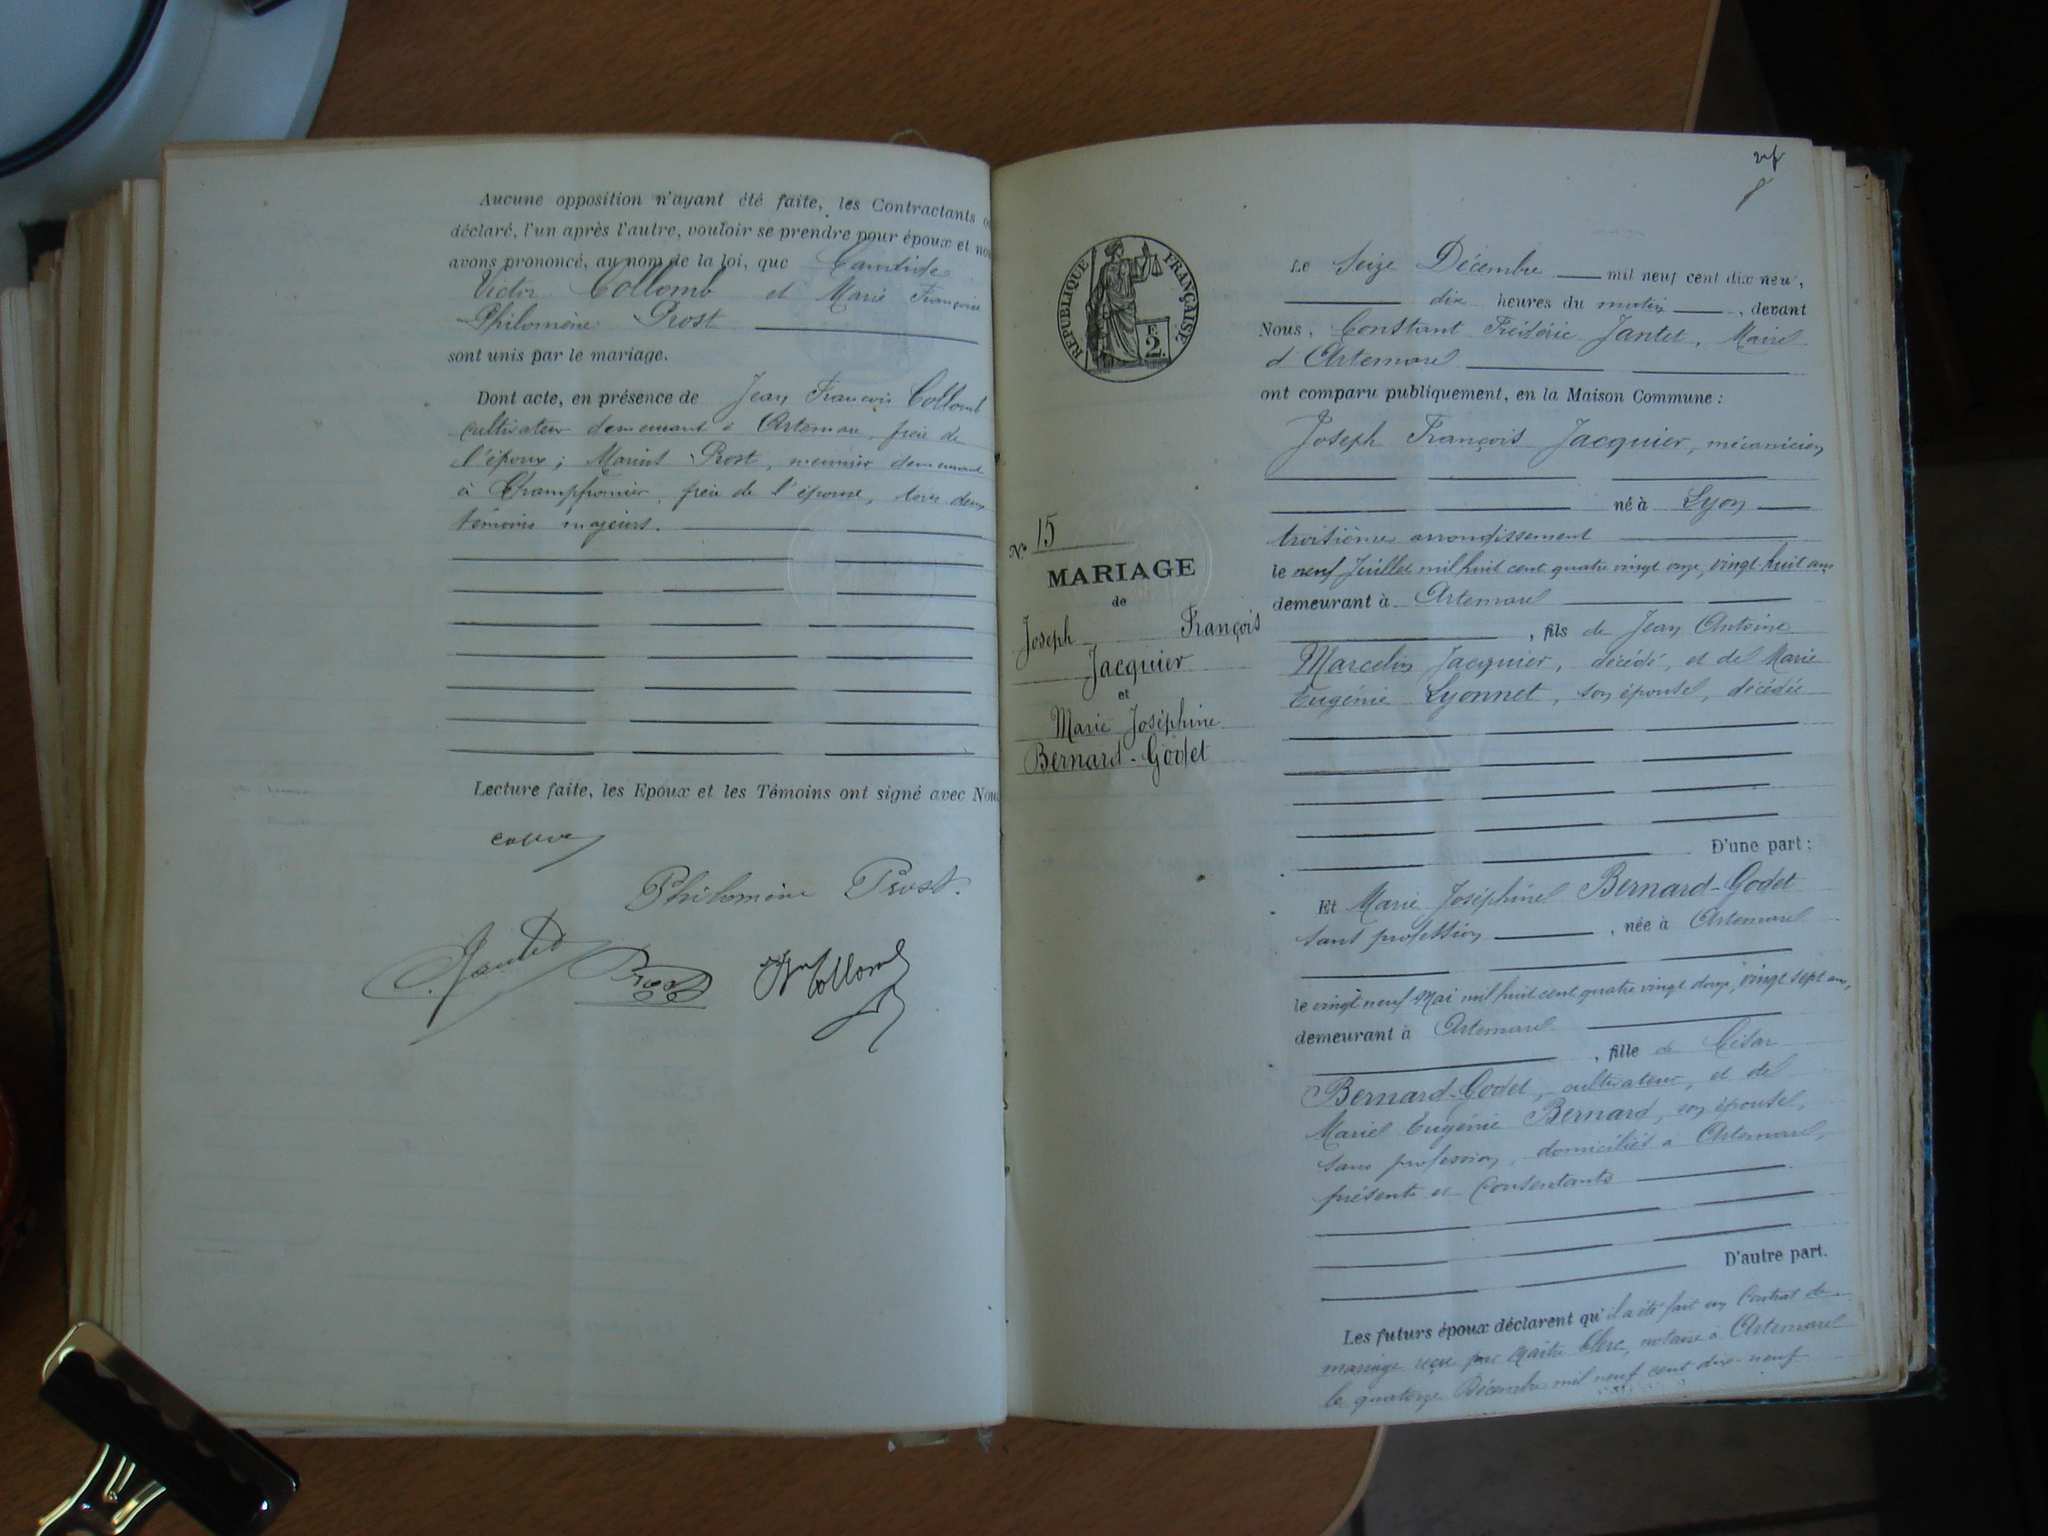 Aucune opposition n'ayant été faite, les Contractants
déclaré, l'un après l'autre, vouloir se prendre pour époux et
avons prononcé, au nom de la loi, que Candide
Victor Collomb et Marie Françoise
Philomène Prost
sont unis par le mariage.
Dont acte, en présence de Jean François Collomb
cultivateur demeurant à Artemare, frère de
l'époux; Marius Prost, meunier demeurant
à Champfromier, frère de l'épouse, tous deux
témoins majeurs.
Lecture faite, les Epoux et les Témoins ont signé avec Nous
Philomène Prost.
Jantet Prost Collomb
RÉPUBLIQUE FRANÇAISE
F.
2.
No 15
MARIAGE
de
Joseph François
Jacquier
et
Marie Joséphine
Bernard-Godet
Le Seize Décembre mil neuf cent dix neuf,
dix heures du matin, devant
Nous, Constant Frédéric Jantet, Maire
d'Artemare
ont comparu publiquement, en la Maison Commune :
Joseph François Jacquier, mécanicien
né à Lyon
troisième arrondissement
le neuf Juillet mil huit cent quatre vingt onze, vingt-huit ans
demeurant à Artemare
, fils de Jean Antoine
Marcelin Jacquier, décédé, et de Marie
Eugénie Lyonnet, son épouse, décédée
D'une part :
Et Marie Joséphine Bernard-Godet
sans profession , née à Artemare
le vingt neuf Mai mil huit cent quatre vingt douze, vingt sept ans,
demeurant à Artemare
, fille de César
Bernard-Godet, cultivateur, et de
Marie Eugénie Bernard, son épouse,
sans profession, domiciliés à Artemare,
présents et consentants
D'autre part.
Les futurs époux déclarent qu'il a été fait un Contrat de
mariage reçu par Maître Clerc, notaire à Artemare
le quatorze Décembre mil neuf cent dix-neuf